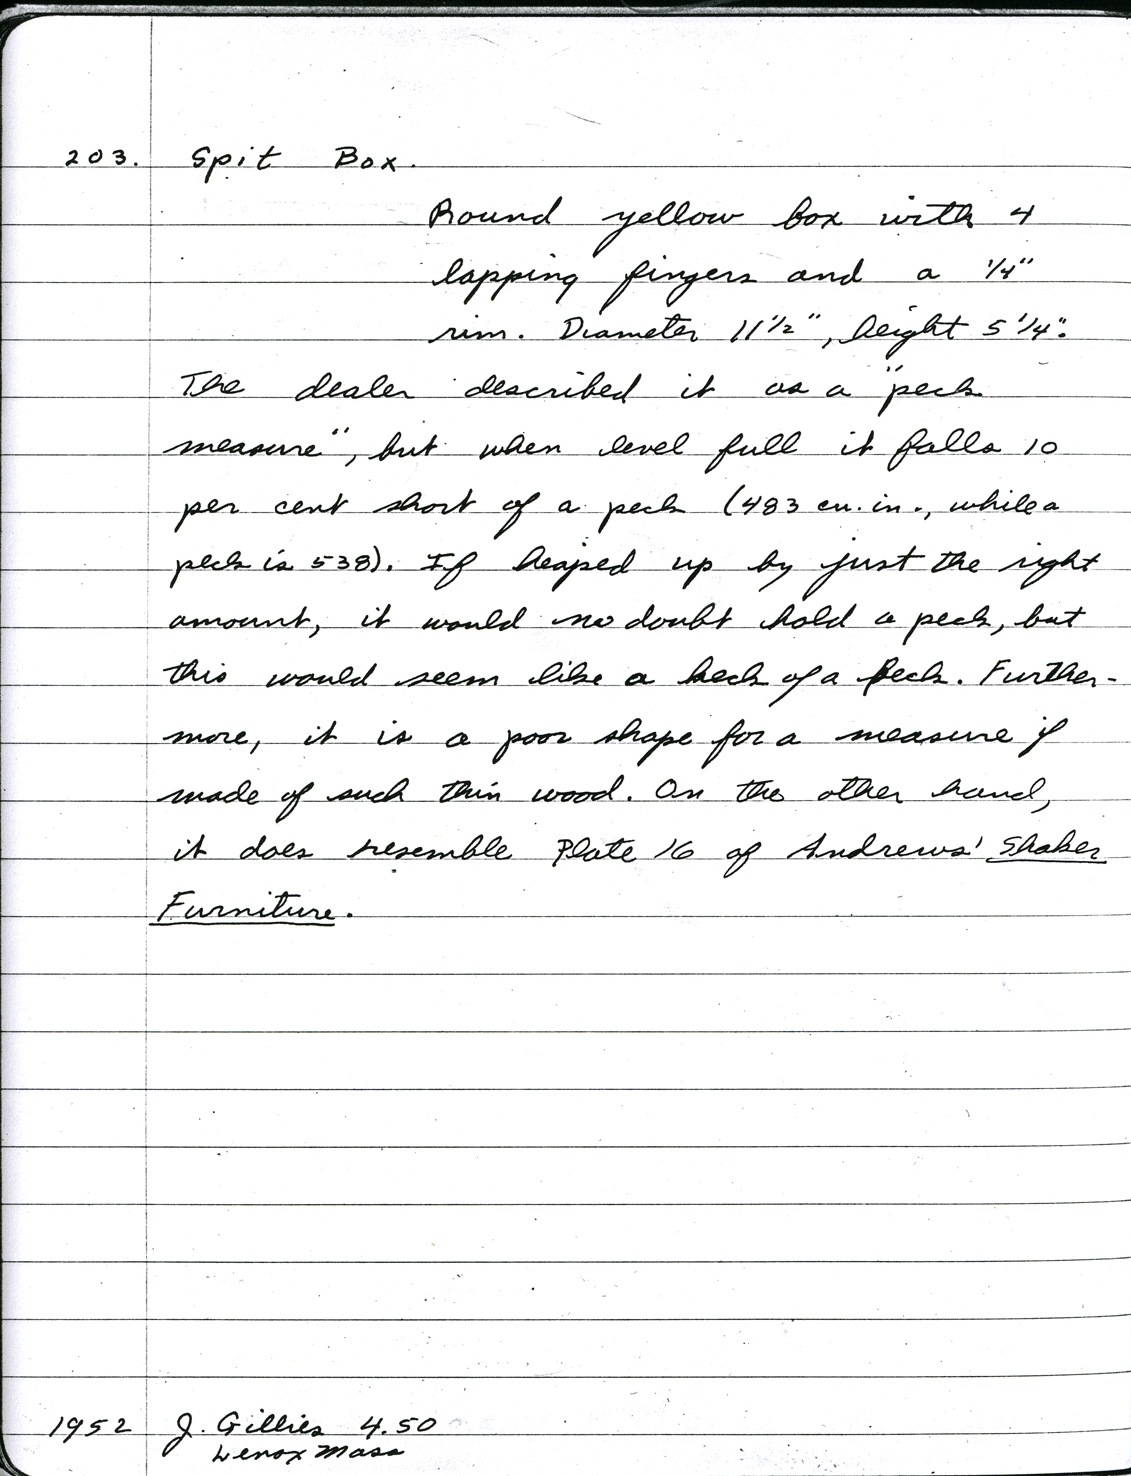 203. Spit Box.
Round yellow box with 4
lapping fingers and a 1/4"
rim. Diameter 11 1/2", height 5 1/4".
The dealer described it as a "peck
measure", but when level full it falls 10
per cent short of a peck (483 cu. in., while a
peck is 538). If heaped up by just the right
amount, it would no doubt hold a peck, but
this would seem like a heck of a peck. Further-
more, it is a poor shape for a measure if
made of such thin wood. On the other hand,
it does resemble Plate 16 of Andrews' Shaker
Furniture.
1952 J. Gillies 4.50
Lenox Mass